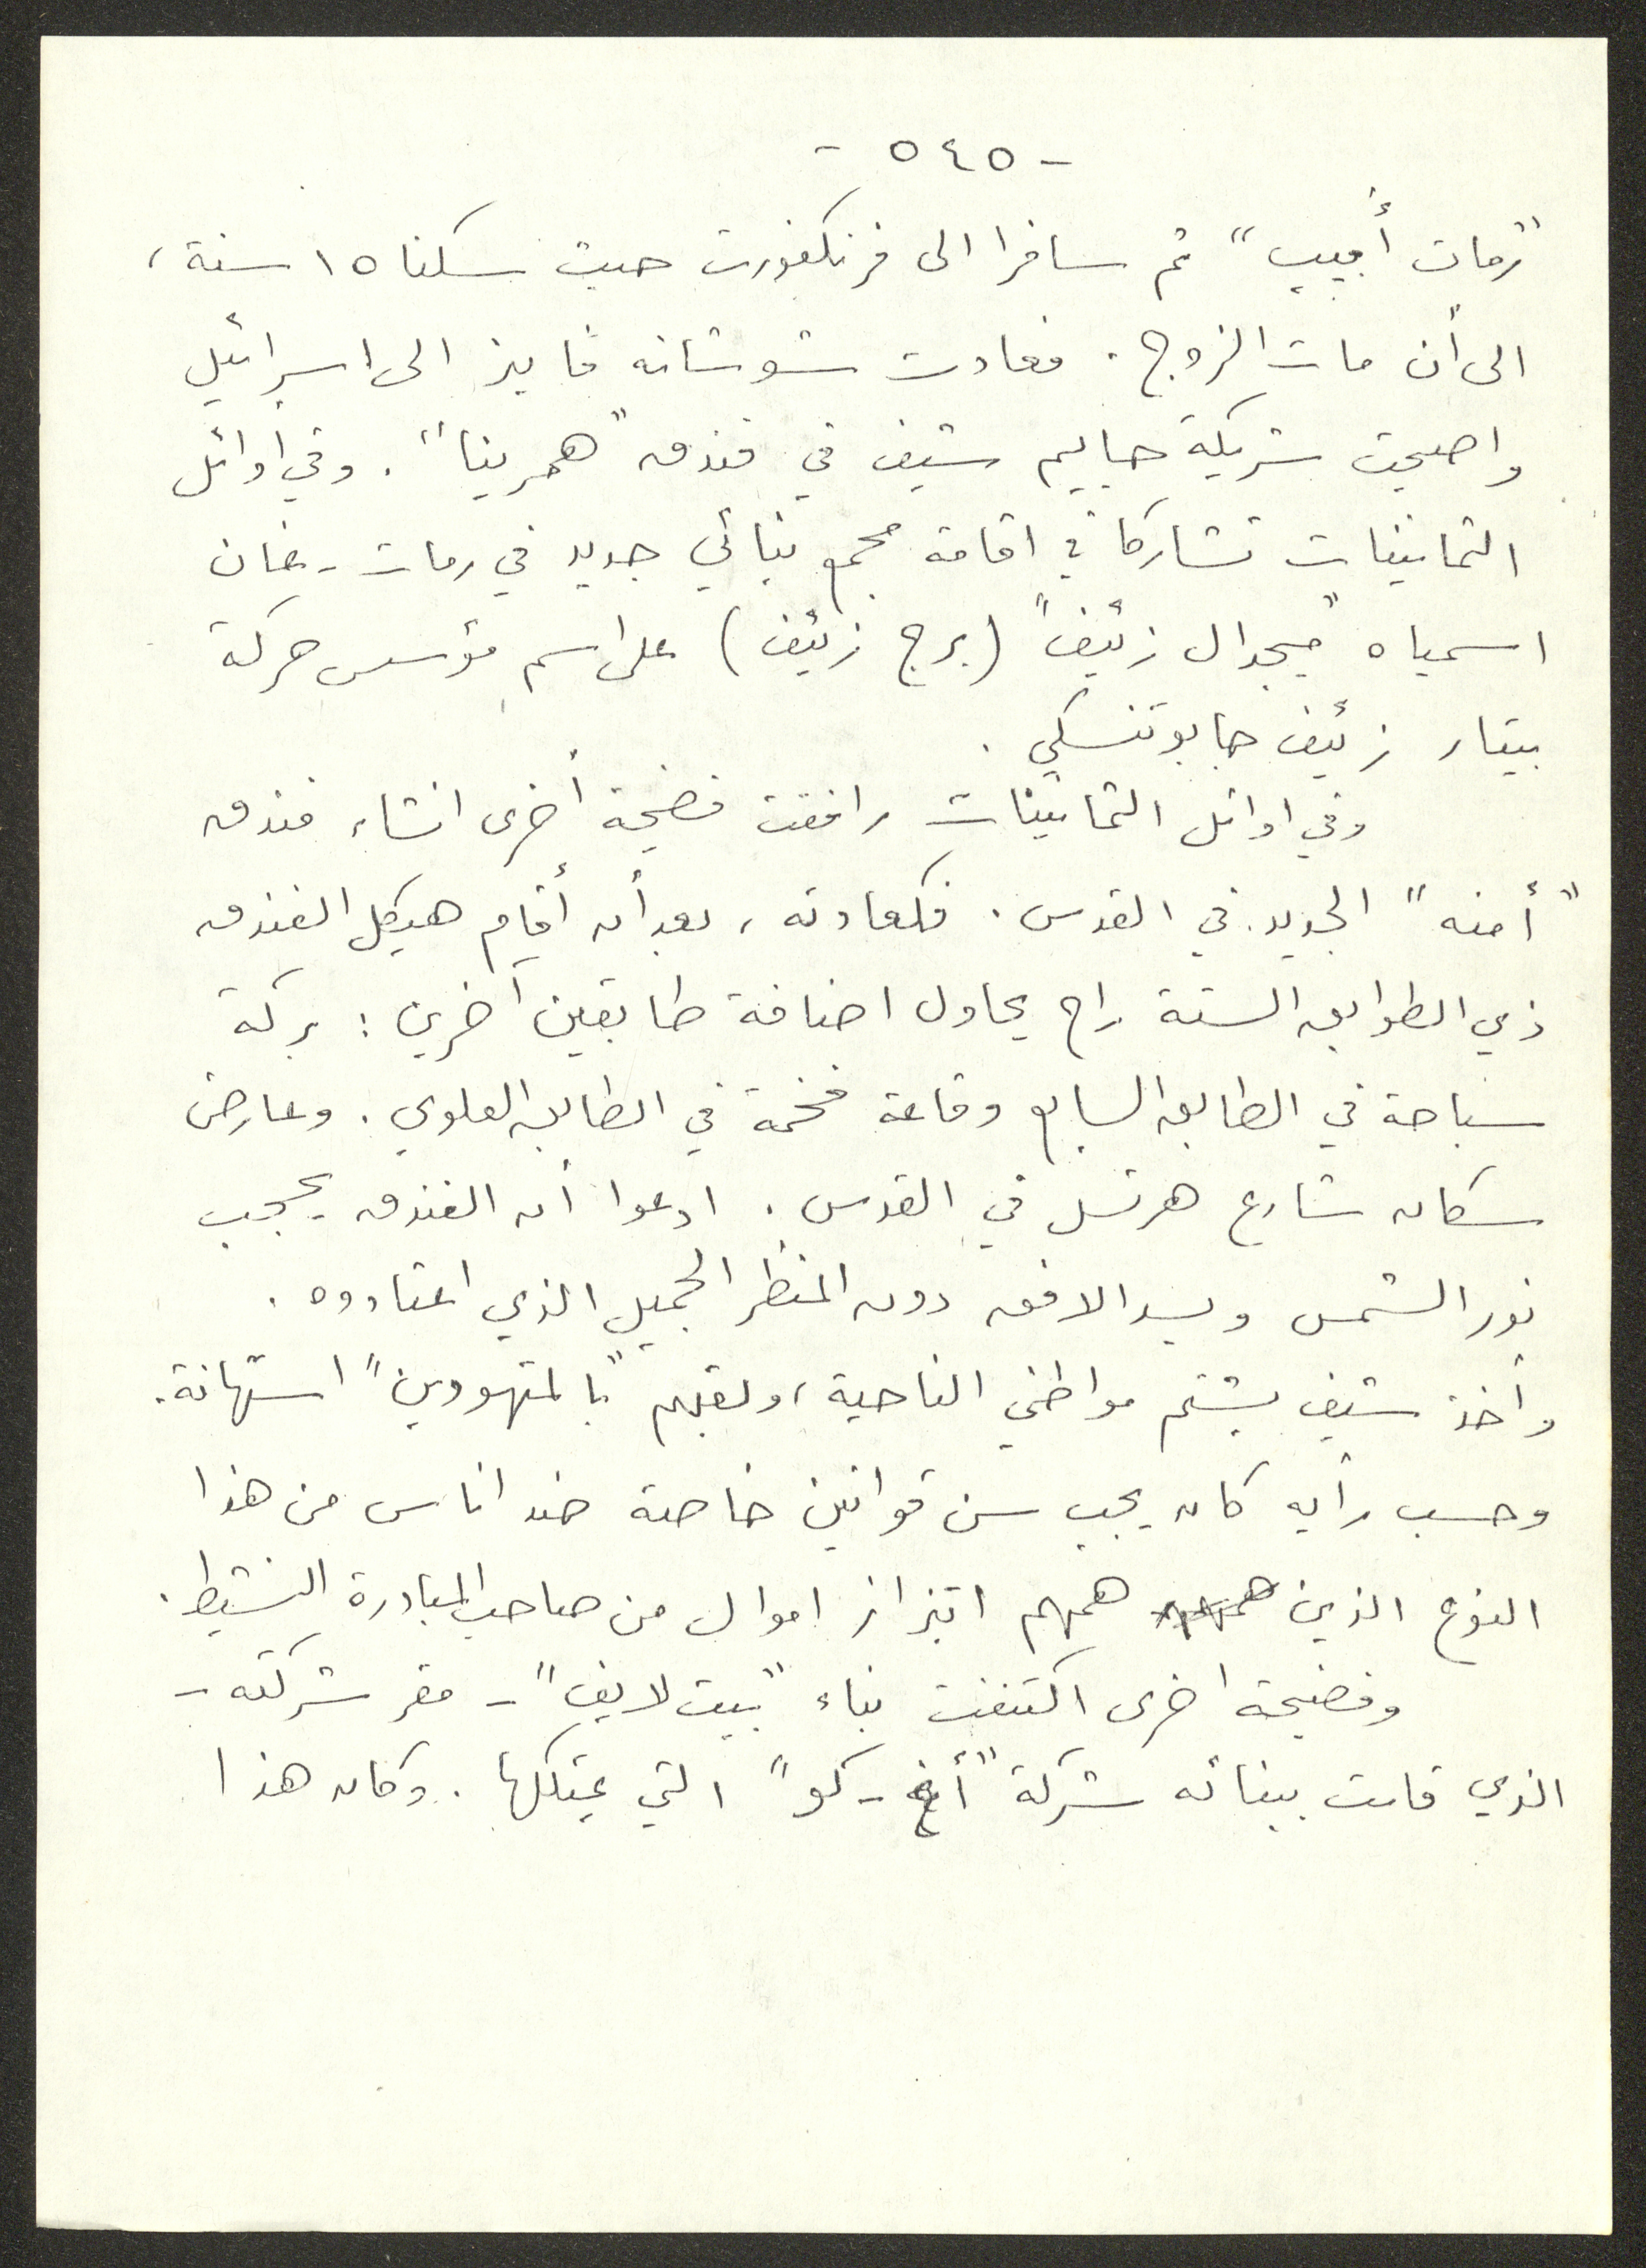 - ٥٤٥ -
"رمات أبيب" ثم سافرا الى فرنكفورت حيث سكنا ١٥ سنة،
الى أن مات الزوج. فعادت شوشانه فايز الى اسرائيل
واصبحت شريكة حاييم شيف في فندق "همرينا". وفي اوائل
الثمانينات تشاركا في اقامة مجمع بنائي جديد في رمات-غان
اسمياه "ميجدال زئيف" (برج زئيف) على اسم مؤسس حركة
بيتار زئيف جابوتنسكي.
وفي اوائل الثمانينات رافقت فضيحة أخرى انشاء فندق
"أمنه" الجديد في القدس. فكعادته، بعد أن أقام هيكل الفندق
ذي الطوابق الستة راح يحاول اضافة طابقين آخرين: بركة
سباحة في الطابق السابع وقاعة فخمة في الطابق العلوي. وعارض
سكان شارع هرتسل في القدس. ادعوا أن الفندق يحجب
نور الشمس ويسد الافق دون المنظر الجميل الذي اعتادوه.
وأخذ شيف يشتم مواطني الناحية، ولقبهم "بالمتهودين" استهانة.
وحسب رأيه كان يجب سن قوانين خاصة ضد اناس من هذا
النوع الذين همهم ابتزاز اموال من صاحب المبادرة النشيط.
وفضيحة اخرى اكتنفت بناء "بيت لايف" - مقر شركته -
الذي قامت ببنائه شركة "أغ-كو" التي يمتلكها. وكان هذا